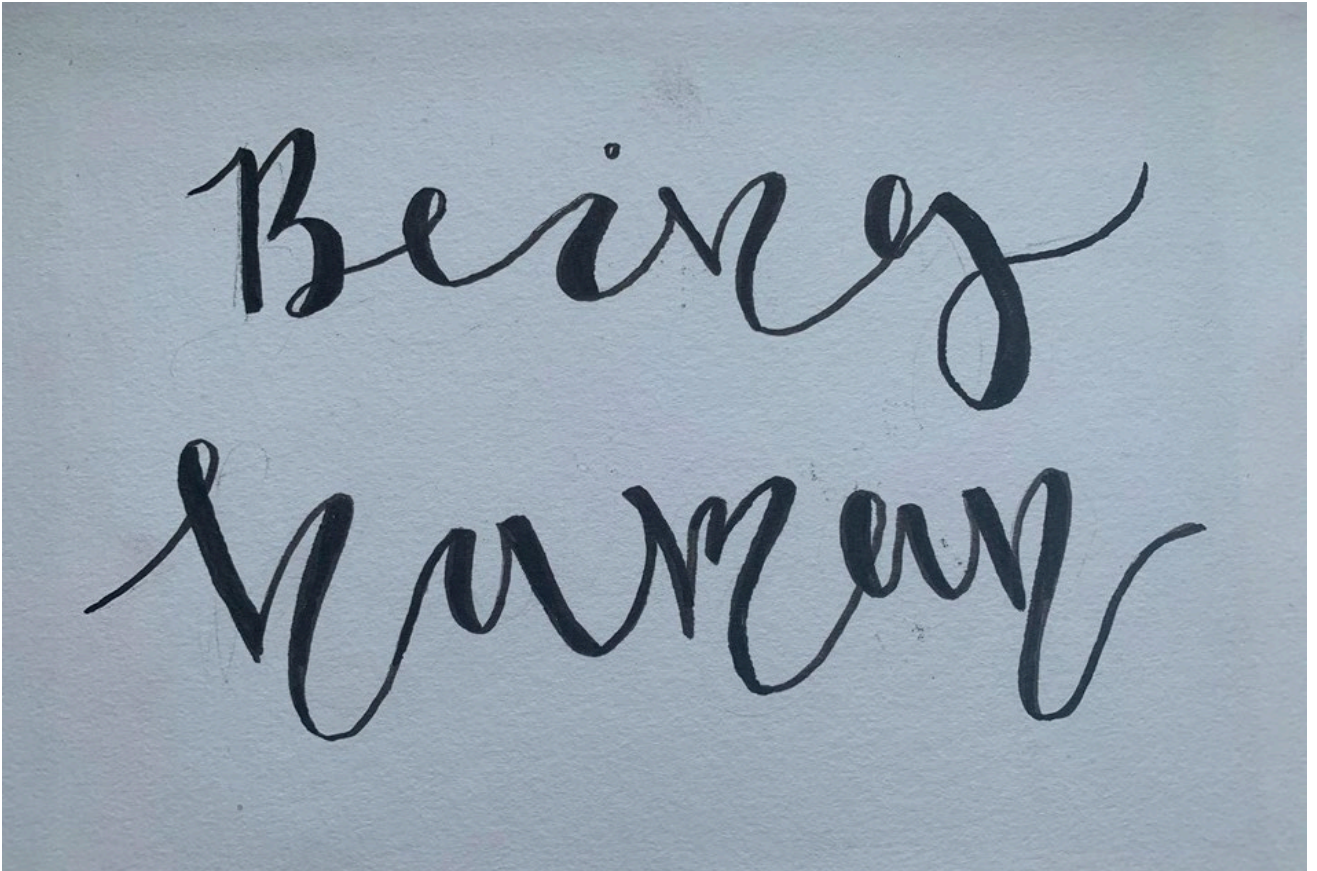 Being
human